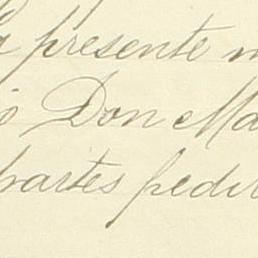 a presente
o Don Ma
partes pedir